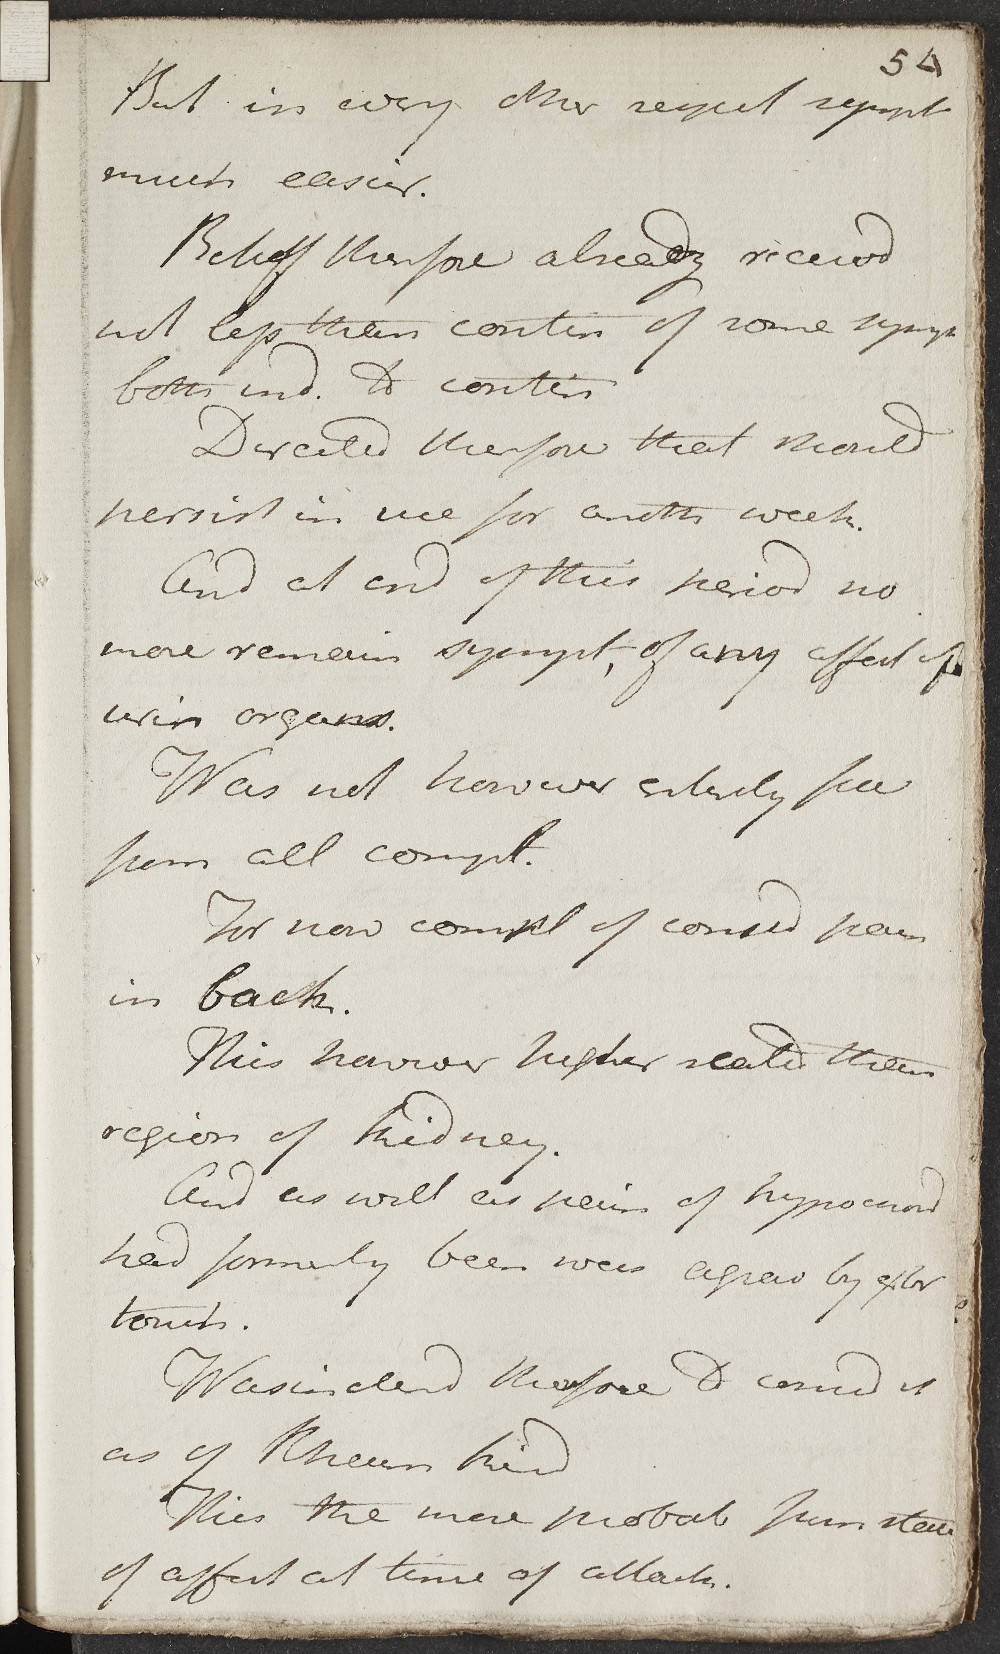 54
But in every other respect sympt
much easier.
Relieff therefore already receivd
not less then contin of some sympt
both ind. to contin
Directed therefore that should
persist in use for anoth week.
And at end of this period no
more remain sympt, of any affect of
urin organs.
Was not however entirely free
from all compt.
For now compl of consid pain
in back.
This however higher seated than
region of kidney.
And as well as pain of hypocond
had formerly been was agrav by
touch.
Was inclend therefore to consid it
as of Rheum kind
This the more probab from state
of affect at time of attack.